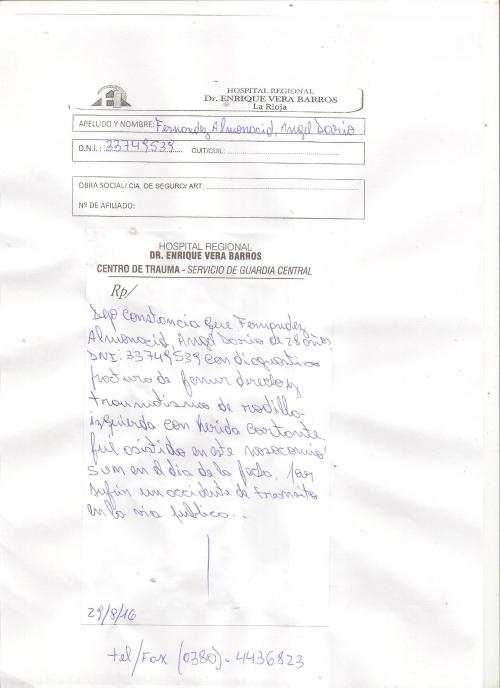 HOSPITAL REGIONAL
Dr. ENRIQUE VERA BARROS
La Rioja
APELLIDO Y NOMBRE: Fernandez Almonacid, Angel Dario
D.N.I. : 33749539 CUIT/CUIL:
OBRA SOCIAL/ CIA. DE SEGURO/ ART:
Nº DE AFILIADO:
HOSPITAL REGIONAL
DR. ENRIQUE VERA BARROS
CENTRO DE TRAUMA - SERVICIO DE GUARDIA CENTRAL
Rp/
Dejo constancia que Fernandez
Almonacid, Angel Dario de 28 años,
DNI: 33749539 con diagnostico
fractura de femur derecho y
traumatismo de rodilla
izquierda con herida cortante
fué asistido en este nosocomio
en el dia de la fecha por
sufrir un accidente de transito
en la via publica..
29/8/16
tel/Fax (0380)-4436823